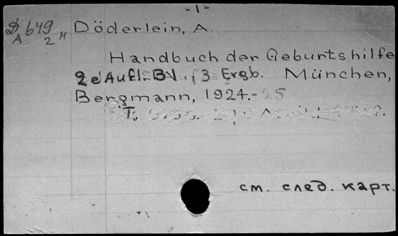 - 1 -
Д 649
A 2 н
Döderlein, A.
Handbuch der Geburtshilfe
2e Aufl. Bd 3. Ergb. München,
Bergmann, 1924.-25
T.
см. след. карт.